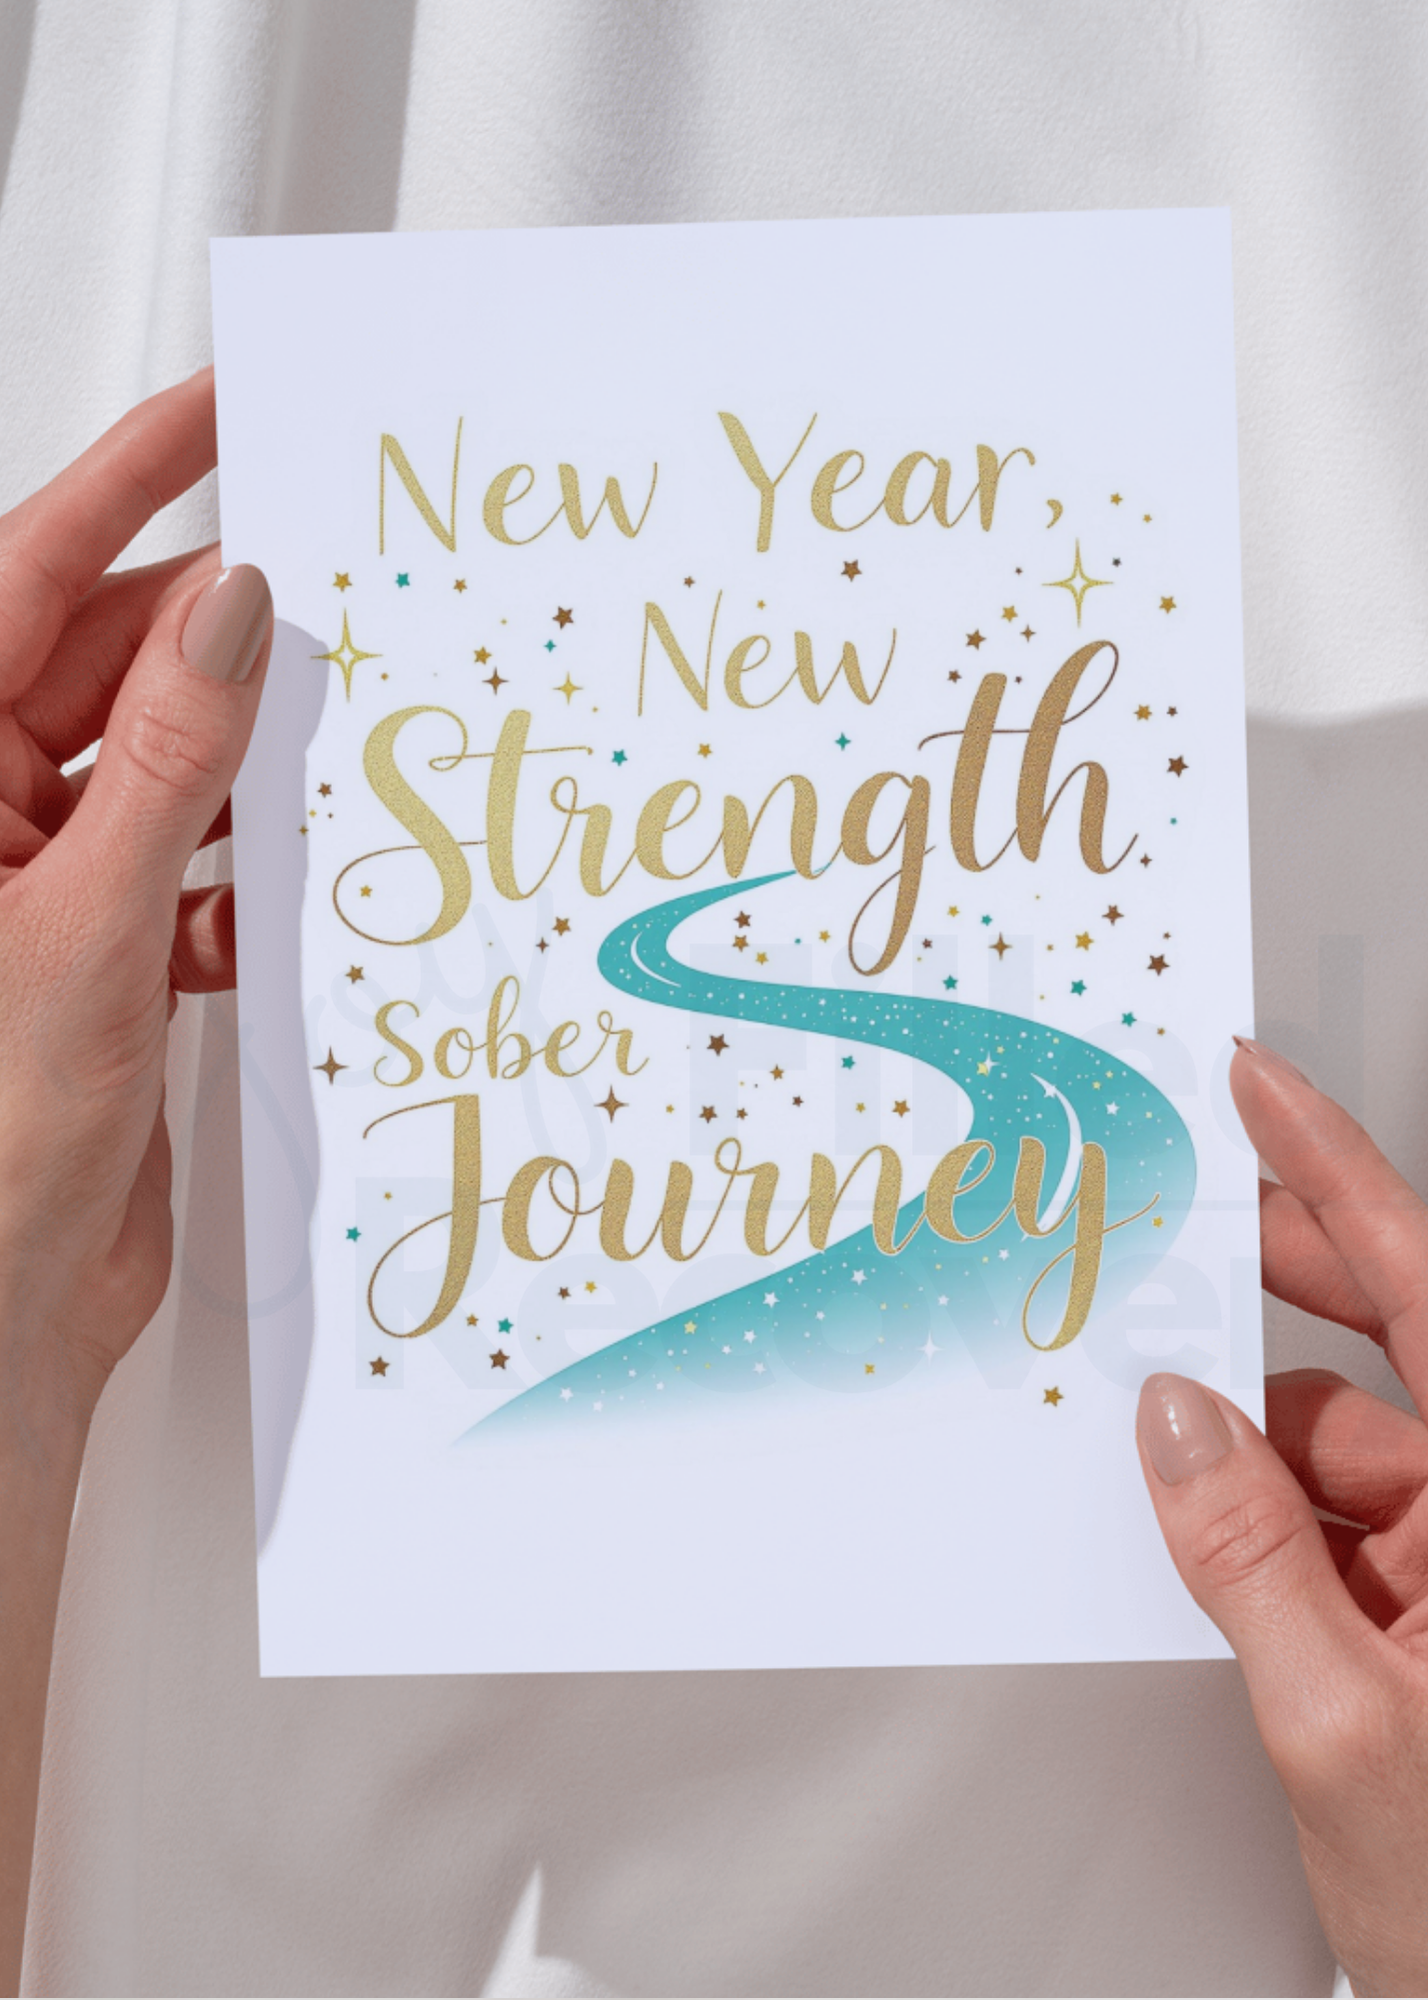 New Year,
New
Strength
Sober
Journey
Joy Filled
Recovery